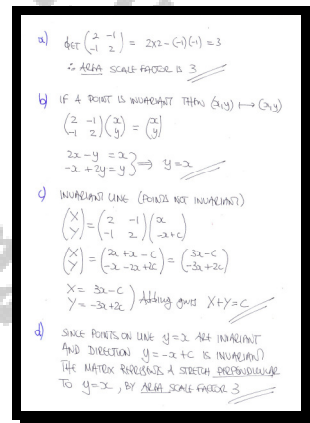 a) DET (2 -1 / -1 2) = 2×2-(-1)(-1) = 3
∴ AREA SCALE FACTOR IS 3
b) IF A POINT IS INVARIANT THEN (x,y) ↦ (x,y)
(2 -1 / -1 2)(x / y) = (x / y)
2x - y = x
-x + 2y = y } ⇒ y = x
c) INVARIANT LINE (POINTS NOT INVARIANT)
(X / Y) = (2 -1 / -1 2)(x / -x+c)
(X / Y) = (2x + x - c / -x - 2x + 2c) = (3x - c / -3x + 2c)
X = 3x - c
Y = -3x + 2c ) Adding gives X+Y=C
d) SINCE POINTS ON LINE y=x ARE INVARIANT
AND DIRECTION y=-x+c IS INVARIANT
THE MATRIX REPRESENTS A STRETCH PERPENDICULAR
TO y=x, BY AREA SCALE FACTOR 3